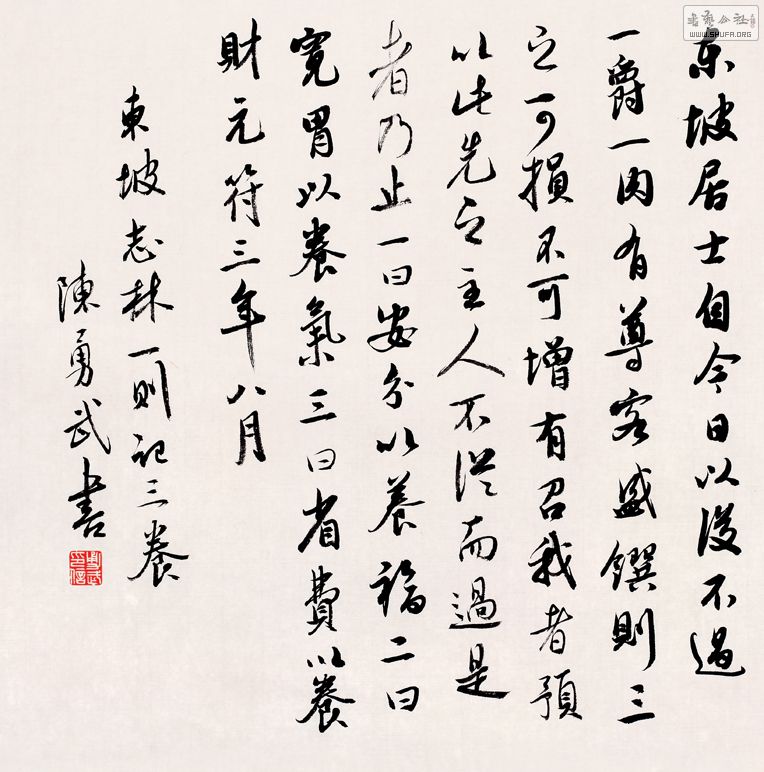 东坡居士自今日以後不過
一爵一肉有尊客盛饌則三
之可損不可增有召我者預
以此先之主人不從而過是
者乃止一曰安分以養福二曰
寬胃以養氣三曰省費以養
財元符三年八月
東坡志林一則記三養
陳勇武書
勇武印信
書藝公社
WWW.SHUFA.ORG